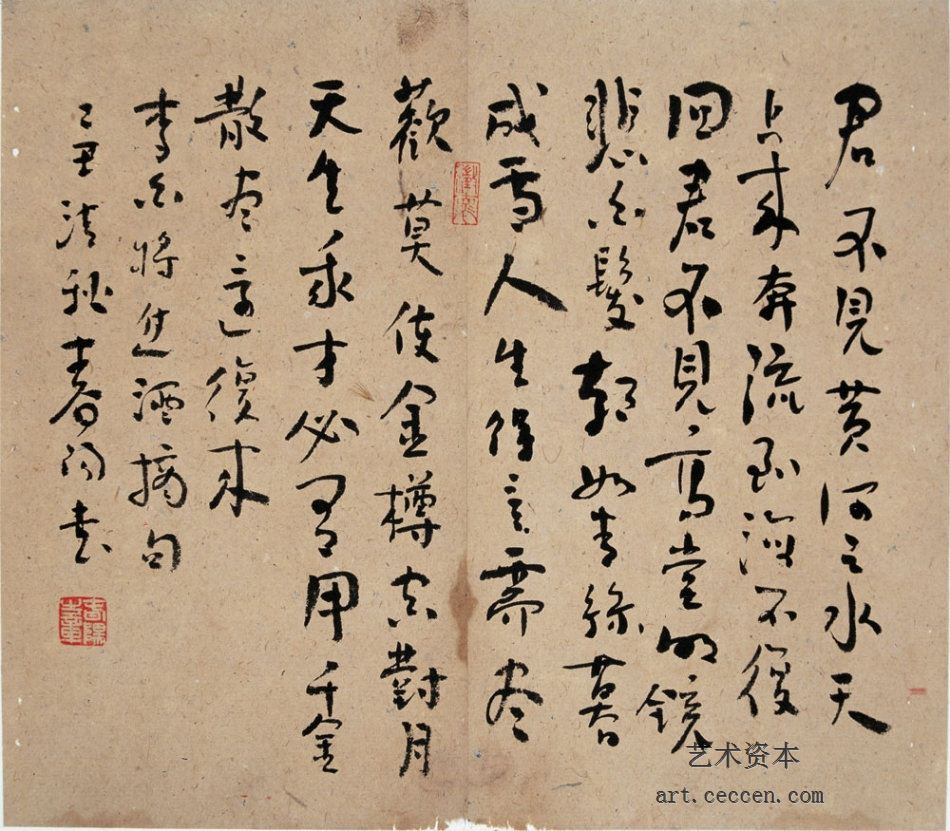 君不見黄河之水天
上来奔流到海不復
回君不見高堂明鏡
悲白髮朝如青絲暮
成雪人生得意需尽
歡莫使金樽空對月
天生我才必有用千金
散尽還復来
李白將进酒摘句
己丑清秋春阳书
艺术资本
art.ceccen.com